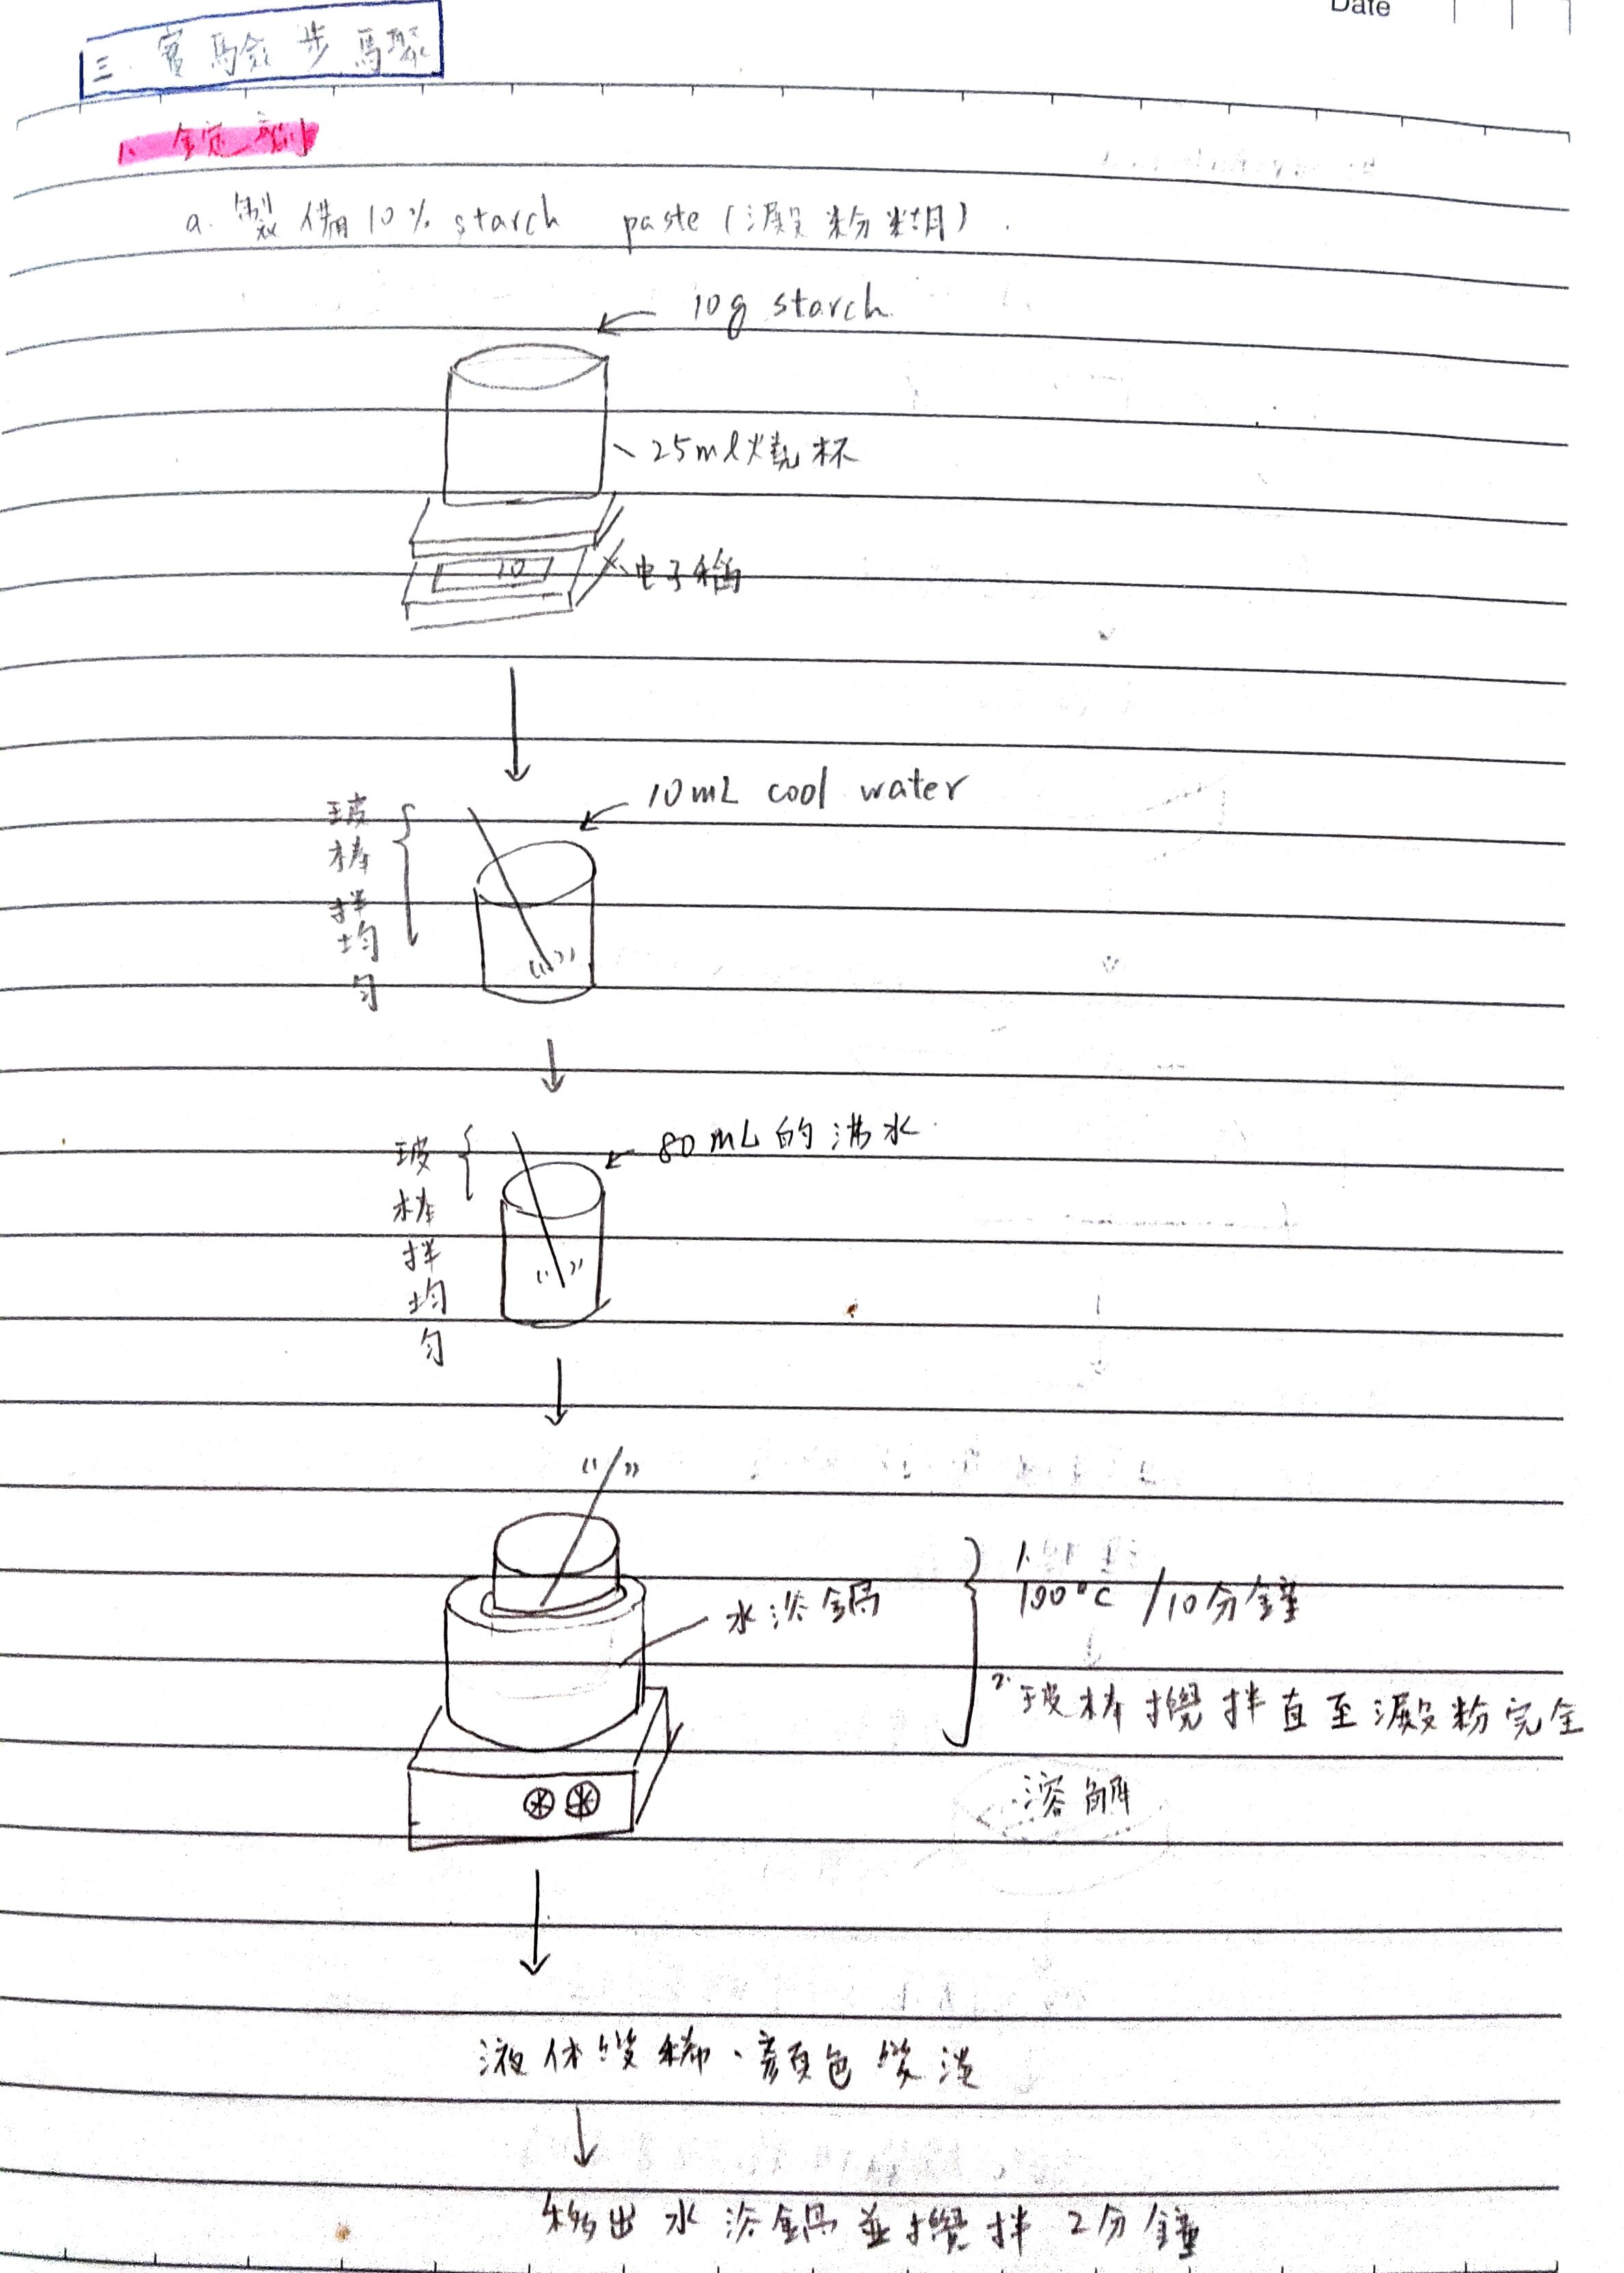 Date
三. 實驗步驟
1. 錠劑
a. 製備10% starch paste (澱粉糊).
10g starch
25ml燒杯
10
电子秤
10mL cool water
玻棒拌均勻
80mL的沸水
玻棒拌均勻
水浴鍋
1. 100°C /10分鐘
2. 玻棒攪拌直至澱粉完全
溶解
液体變稀、顏色變淡
移出水浴鍋並攪拌2分鐘